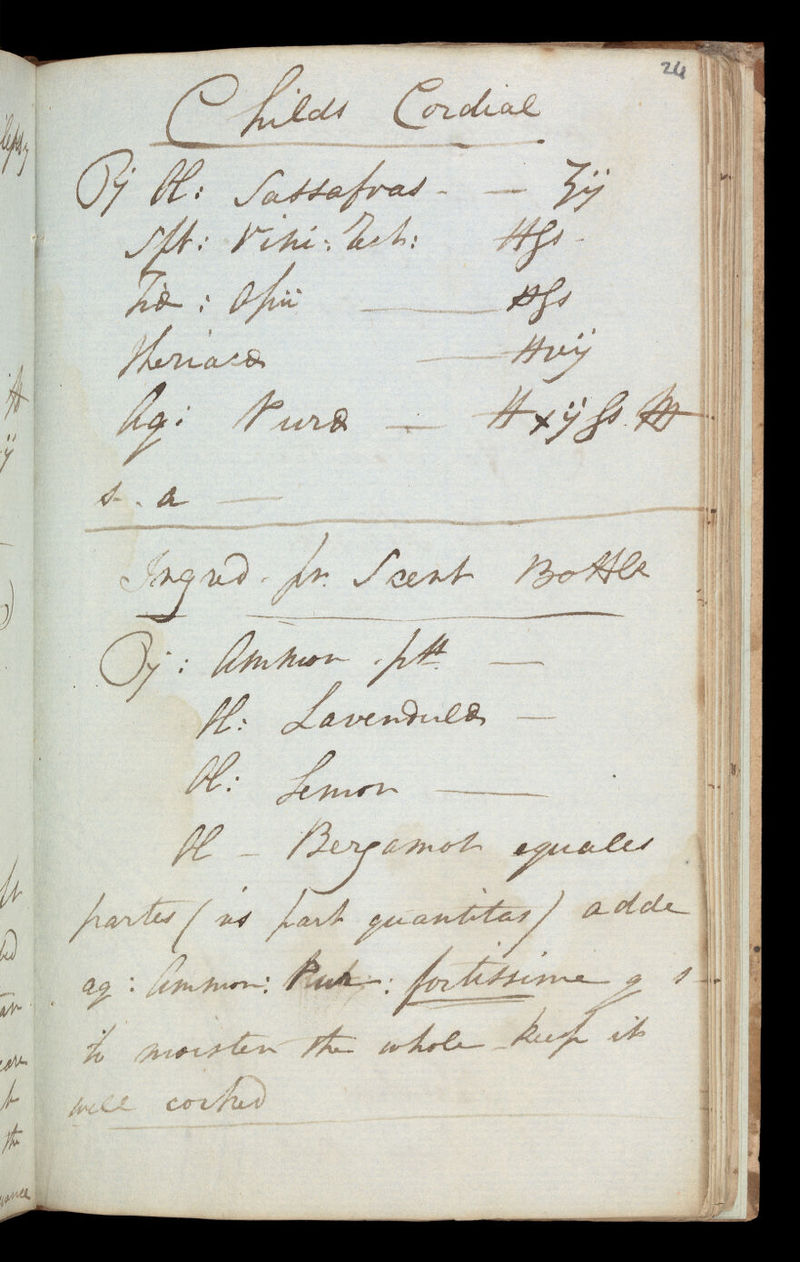 24
Childs Cordial
℞ Ol: Sassafras - — ℥ij
Spt: Vini: Rect: ℔ſs -
Tiæ : Opii — ℔ſs
Theriacæ — ℔vij
Aq: Puræ — ℔xijſs
s. a —
Ingred. for Scent Bottle
℞: Ammon. ptt —
Ol: Lavendulæ —
Ol: Lemon —
Ol - Bergamot equales
partes ( part quantitas) adde
aq: Ammon: Pur: fortissime q s -
to moisten the whole keep it
well corked